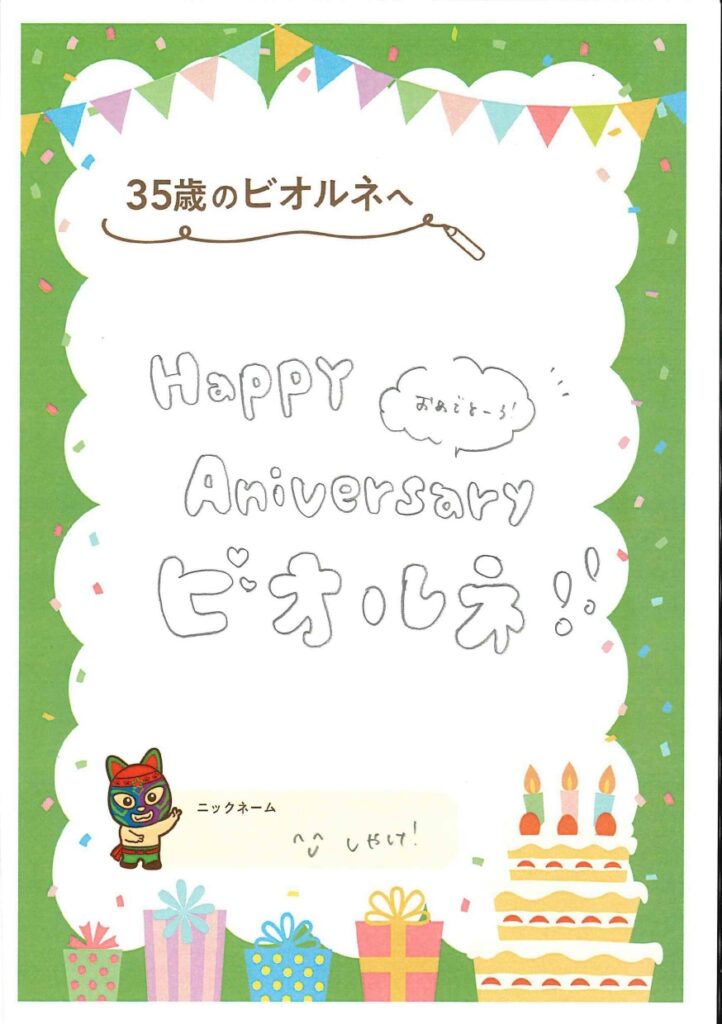 35歳のビオルネへ
Happy
おめでとーう!
Aniversary
ビオルネ!!
ニックネーム
しゃけ!